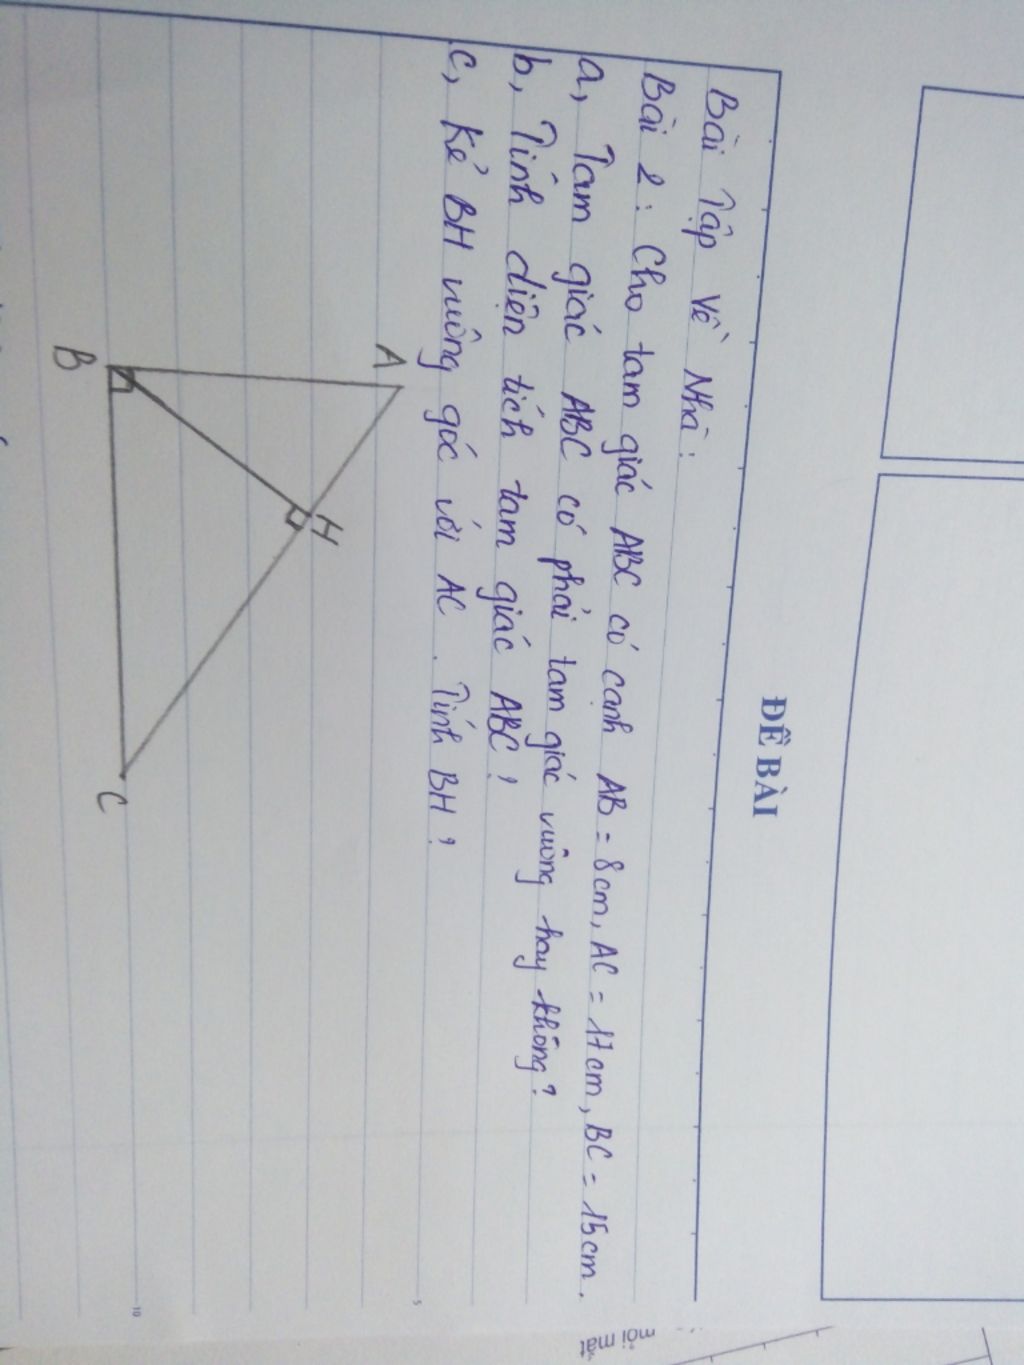 ĐỀ BÀI
Bài Tập Về Nhà:
Bài 2: Cho tam giác ABC có cạnh AB = 8cm, AC = 17cm, BC = 15cm.
a, Tam giác ABC có phải tam giác vuông hay không?
b, Tính diện tích tam giác ABC?
c, Kẻ BH vuông góc với AC. Tính BH?
A
H
B
C
5
10
mỗi mắt